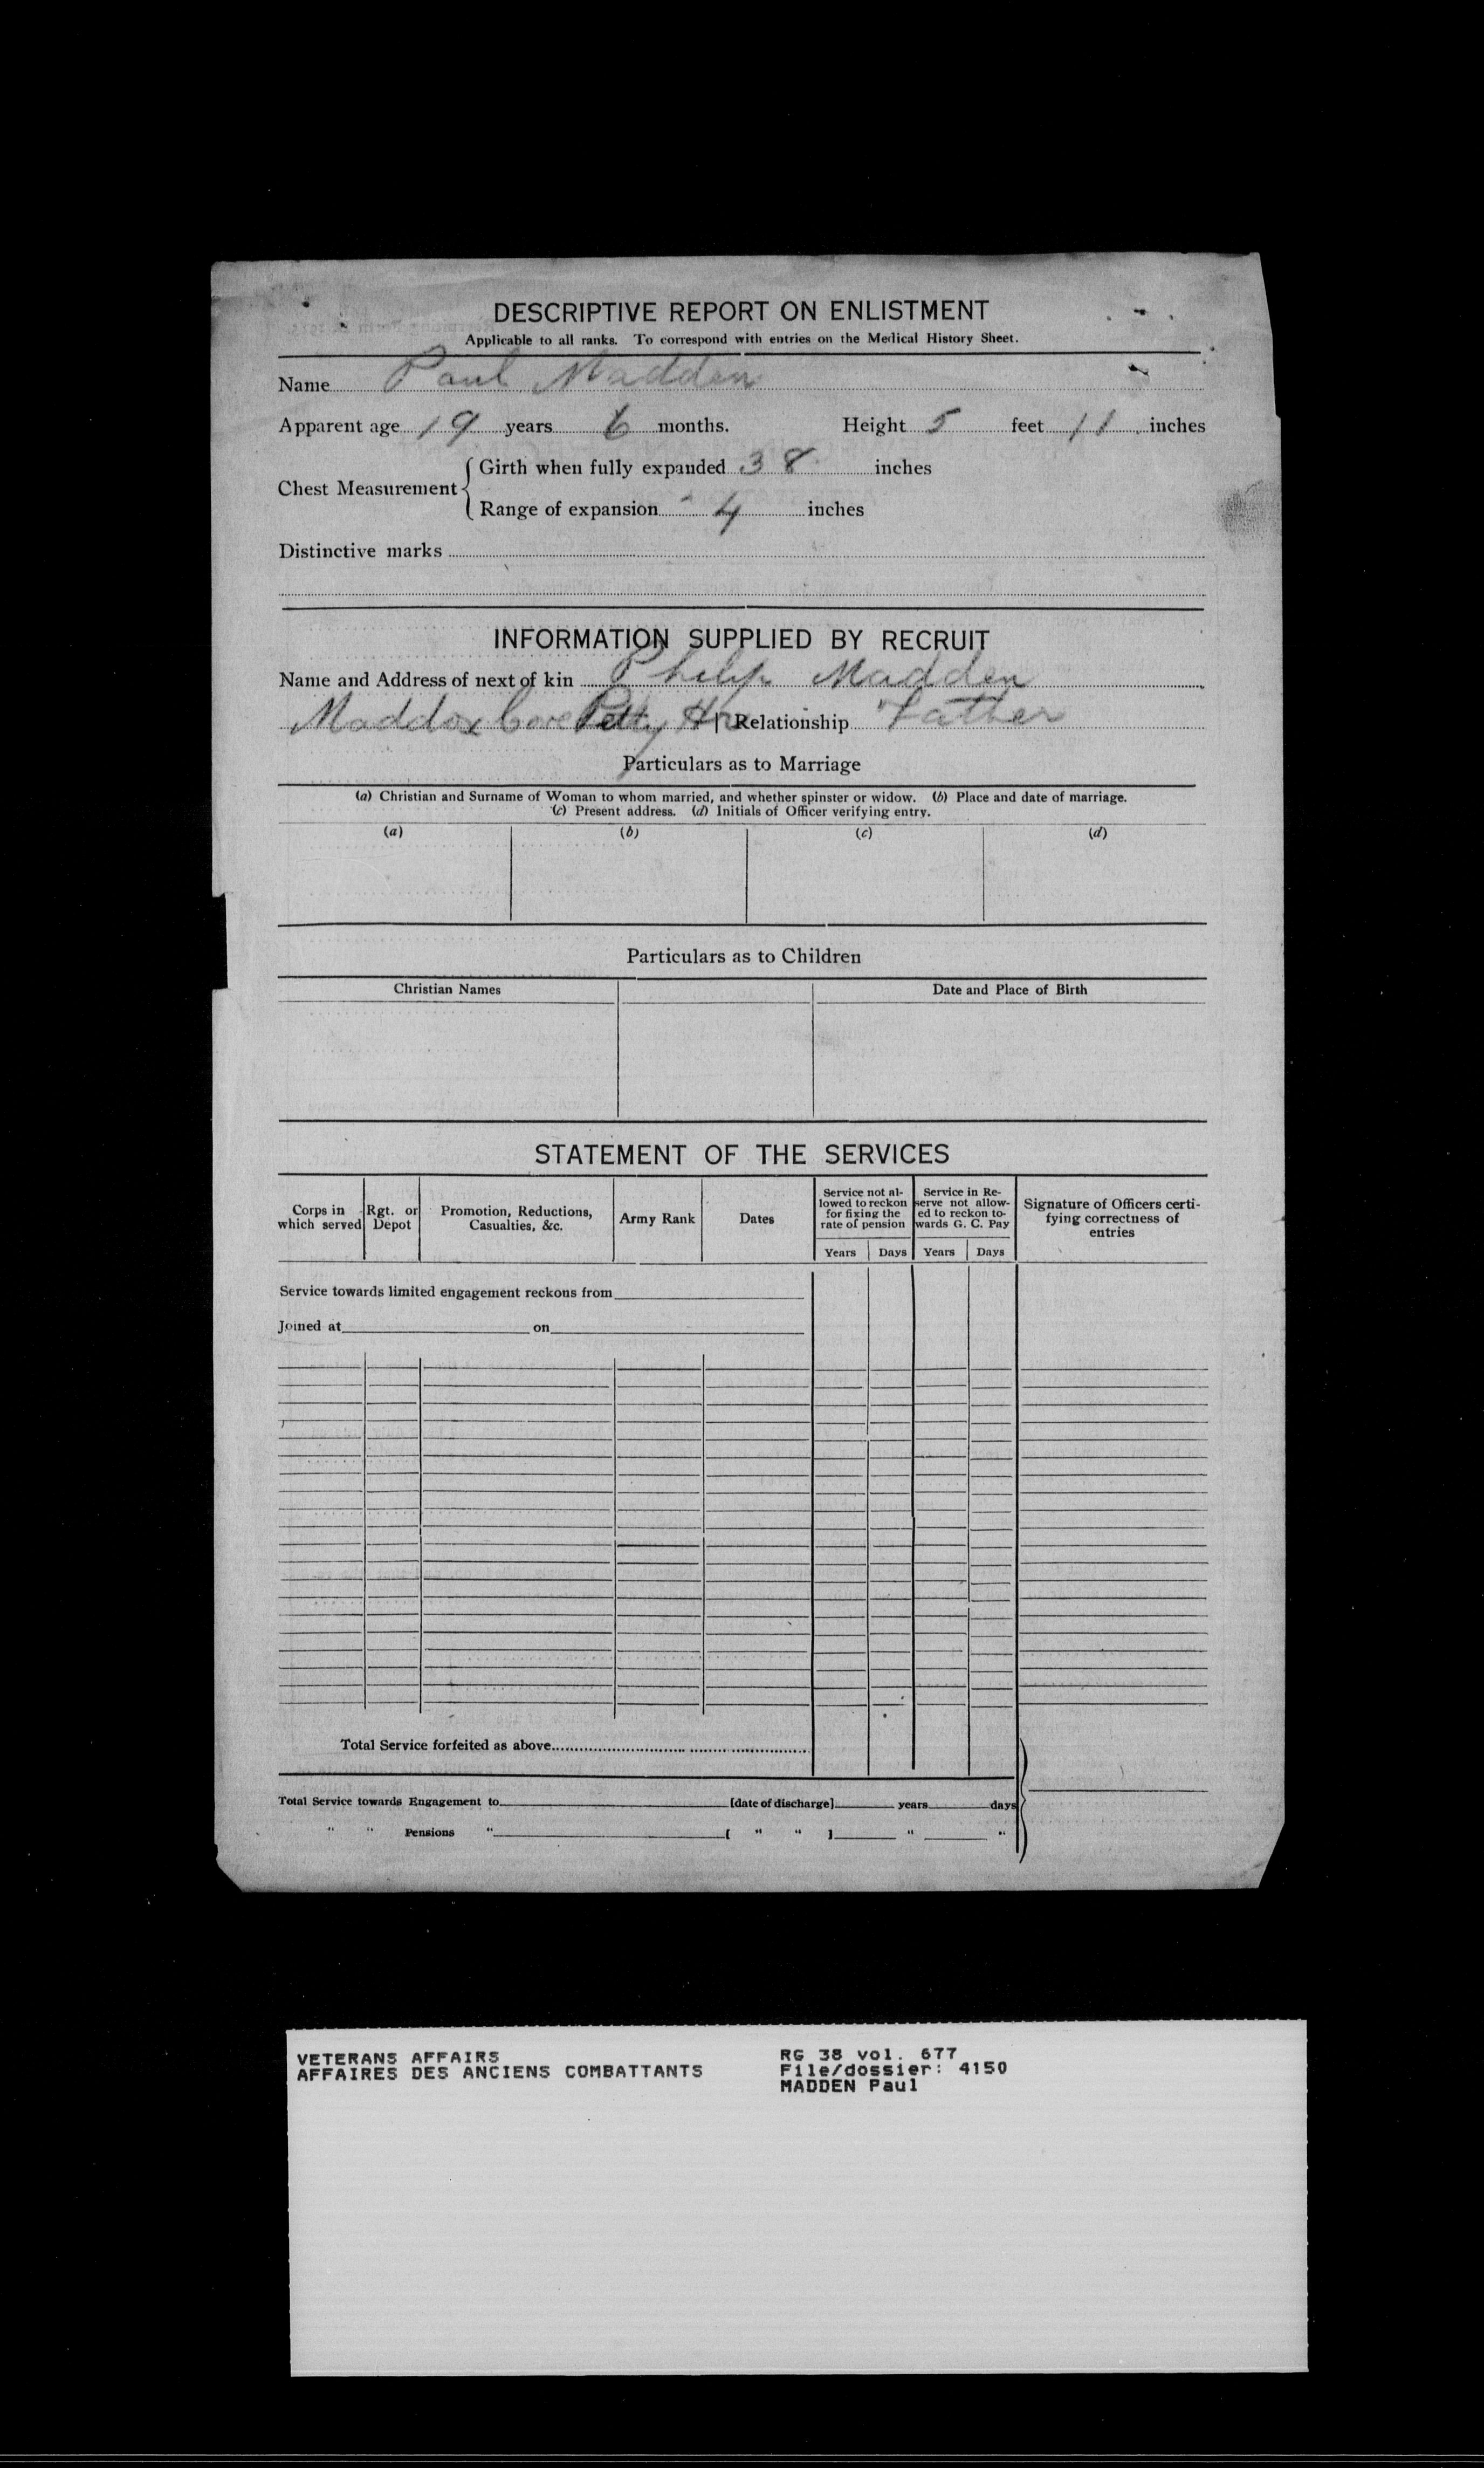 DESCRIPTIVE REPORT ON ENLISTMENT
Applicable to all ranks. To correspond with entries on the Medical History Sheet.
Name Paul Madden
Apparent age 19 years 6 months. Height 5 feet 11 inches
Chest Measurement { Girth when fully expanded 38 inches
Range of expansion 4 inches
Distinctive marks
INFORMATION SUPPLIED BY RECRUIT
Name and Address of next of kin Philip Madden
Maddox Cove Petty Hr | Relationship Father
Particulars as to Marriage
(a) Christian and Surname of Woman to whom married, and whether spinster or widow. (b) Place and date of marriage.
(c) Present address. (d) Initials of Officer verifying entry.
(a) (b) (c) (d)
Particulars as to Children
Christian Names Date and Place of Birth
STATEMENT OF THE SERVICES
Corps in which served Rgt. or Depot Promotion, Reductions, Casualties, &c. Army Rank Dates Service not allowed to reckon for fixing the rate of pension Service in Reserve not allowed to reckon towards G. C. Pay Signature of Officers certifying correctness of entries
Years Days Years Days
Service towards limited engagement reckons from
Joined at on
Total Service forfeited as above
Total Service towards Engagement to [date of discharge] years days
" " Pensions " [ " " ] " "
VETERANS AFFAIRS RG 38 vol. 677
AFFAIRES DES ANCIENS COMBATTANTS File/dossier: 4150
MADDEN Paul